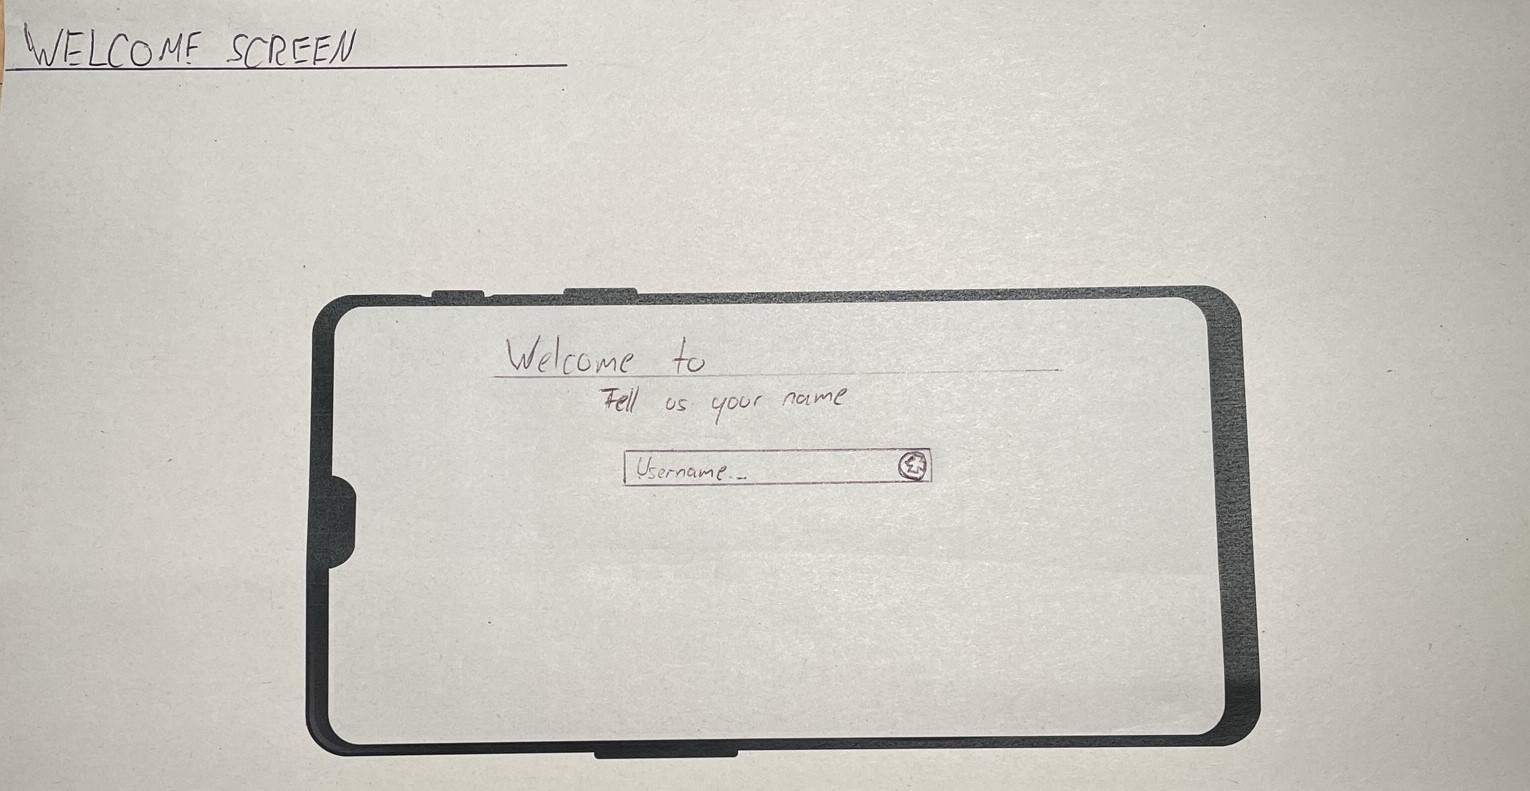 WELCOME SCREEN
Welcome to
Tell us your name
Username...